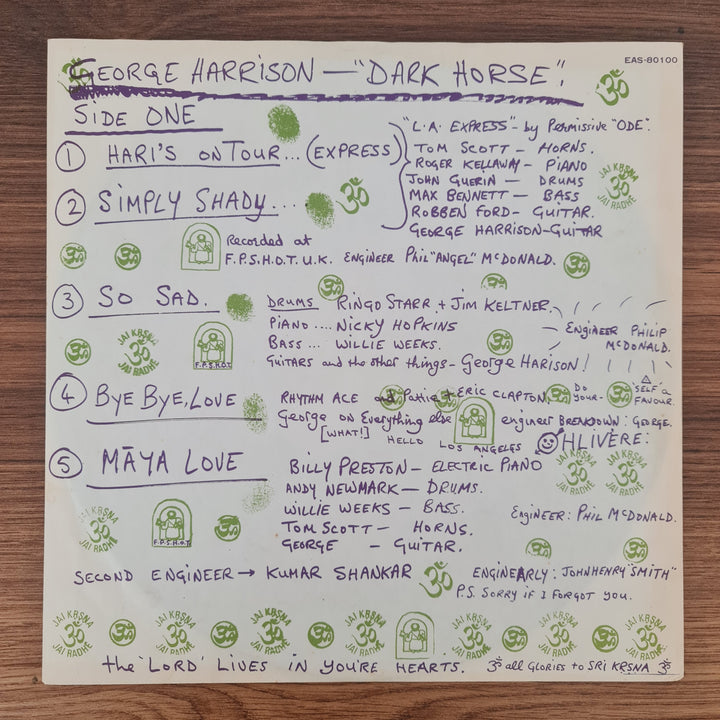 EAS-80100
GEORGE HARRISON — "DARK HORSE".
SIDE ONE
① HARI'S ON TOUR... (EXPRESS)
"L.A. EXPRESS" - by Permissive "ODE".
TOM SCOTT — HORNS.
ROGER KELLAWAY — PIANO
JOHN GUERIN — DRUMS
MAX BENNETT — BASS
ROBBEN FORD - GUITAR.
GEORGE HARRISON - GUITAR
② SIMPLY SHADY...
ॐ
JAI KRSNA
ॐ
JAI RADHE
Recorded at
F.P.S.H.O.T. U.K. ENGINEER PHIL "ANGEL" McDONALD.
③ SO SAD.
DRUMS RINGO STARR + JIM KELTNER.
PIANO .... NICKY HOPKINS
BASS ... WILLIE WEEKS.
GUITARS and the other things - GEORGE HARISON!
ENGINEER PHILIP
McDONALD.
JAI KRSNA
ॐ
JAI RADHE
F.P.S.H.O.T.
④ BYE BYE, LOVE
RHYTHM ACE and Pattie + ERIC CLAPTON,
George on Everything else
[WHAT!] HELLO LOS ANGELES
DO YOUR-SELF a FAVOUR.
engineer BREAKDOWN: GEORGE.
OHLIVERE:
⑤ MĀYA LOVE
BILLY PRESTON — ELECTRIC PIANO
ANDY NEWMARK — DRUMS.
WILLIE WEEKS — BASS.
TOM SCOTT — HORNS.
GEORGE — GUITAR.
JAI KRSNA
ॐ
JAI RADHE
JAI KRSNA
ॐ
JAI RADHE
ENGINEER: PHIL McDONALD.
JAI KRSNA
ॐ
JAI RADHE
F.P.S.H.O.T.
SECOND ENGINEER → KUMAR SHANKAR
ENGINEARLY: JOHNHENRY "SMITH"
P.S. SORRY IF I FORGOT YOU.
JAI KRSNA ॐ JAI RADHE
JAI KRSNA ॐ JAI RADHE
JAI KRSNA ॐ JAI RADHE
JAI KRSNA ॐ JAI RADHE
JAI KRSNA ॐ JAI RADHE
JAI KRSNA ॐ JAI RADHE
the 'LORD' LIVES IN YOU'RE HEARTS. ॐ all GLORIES to SRI KRSNA ॐ